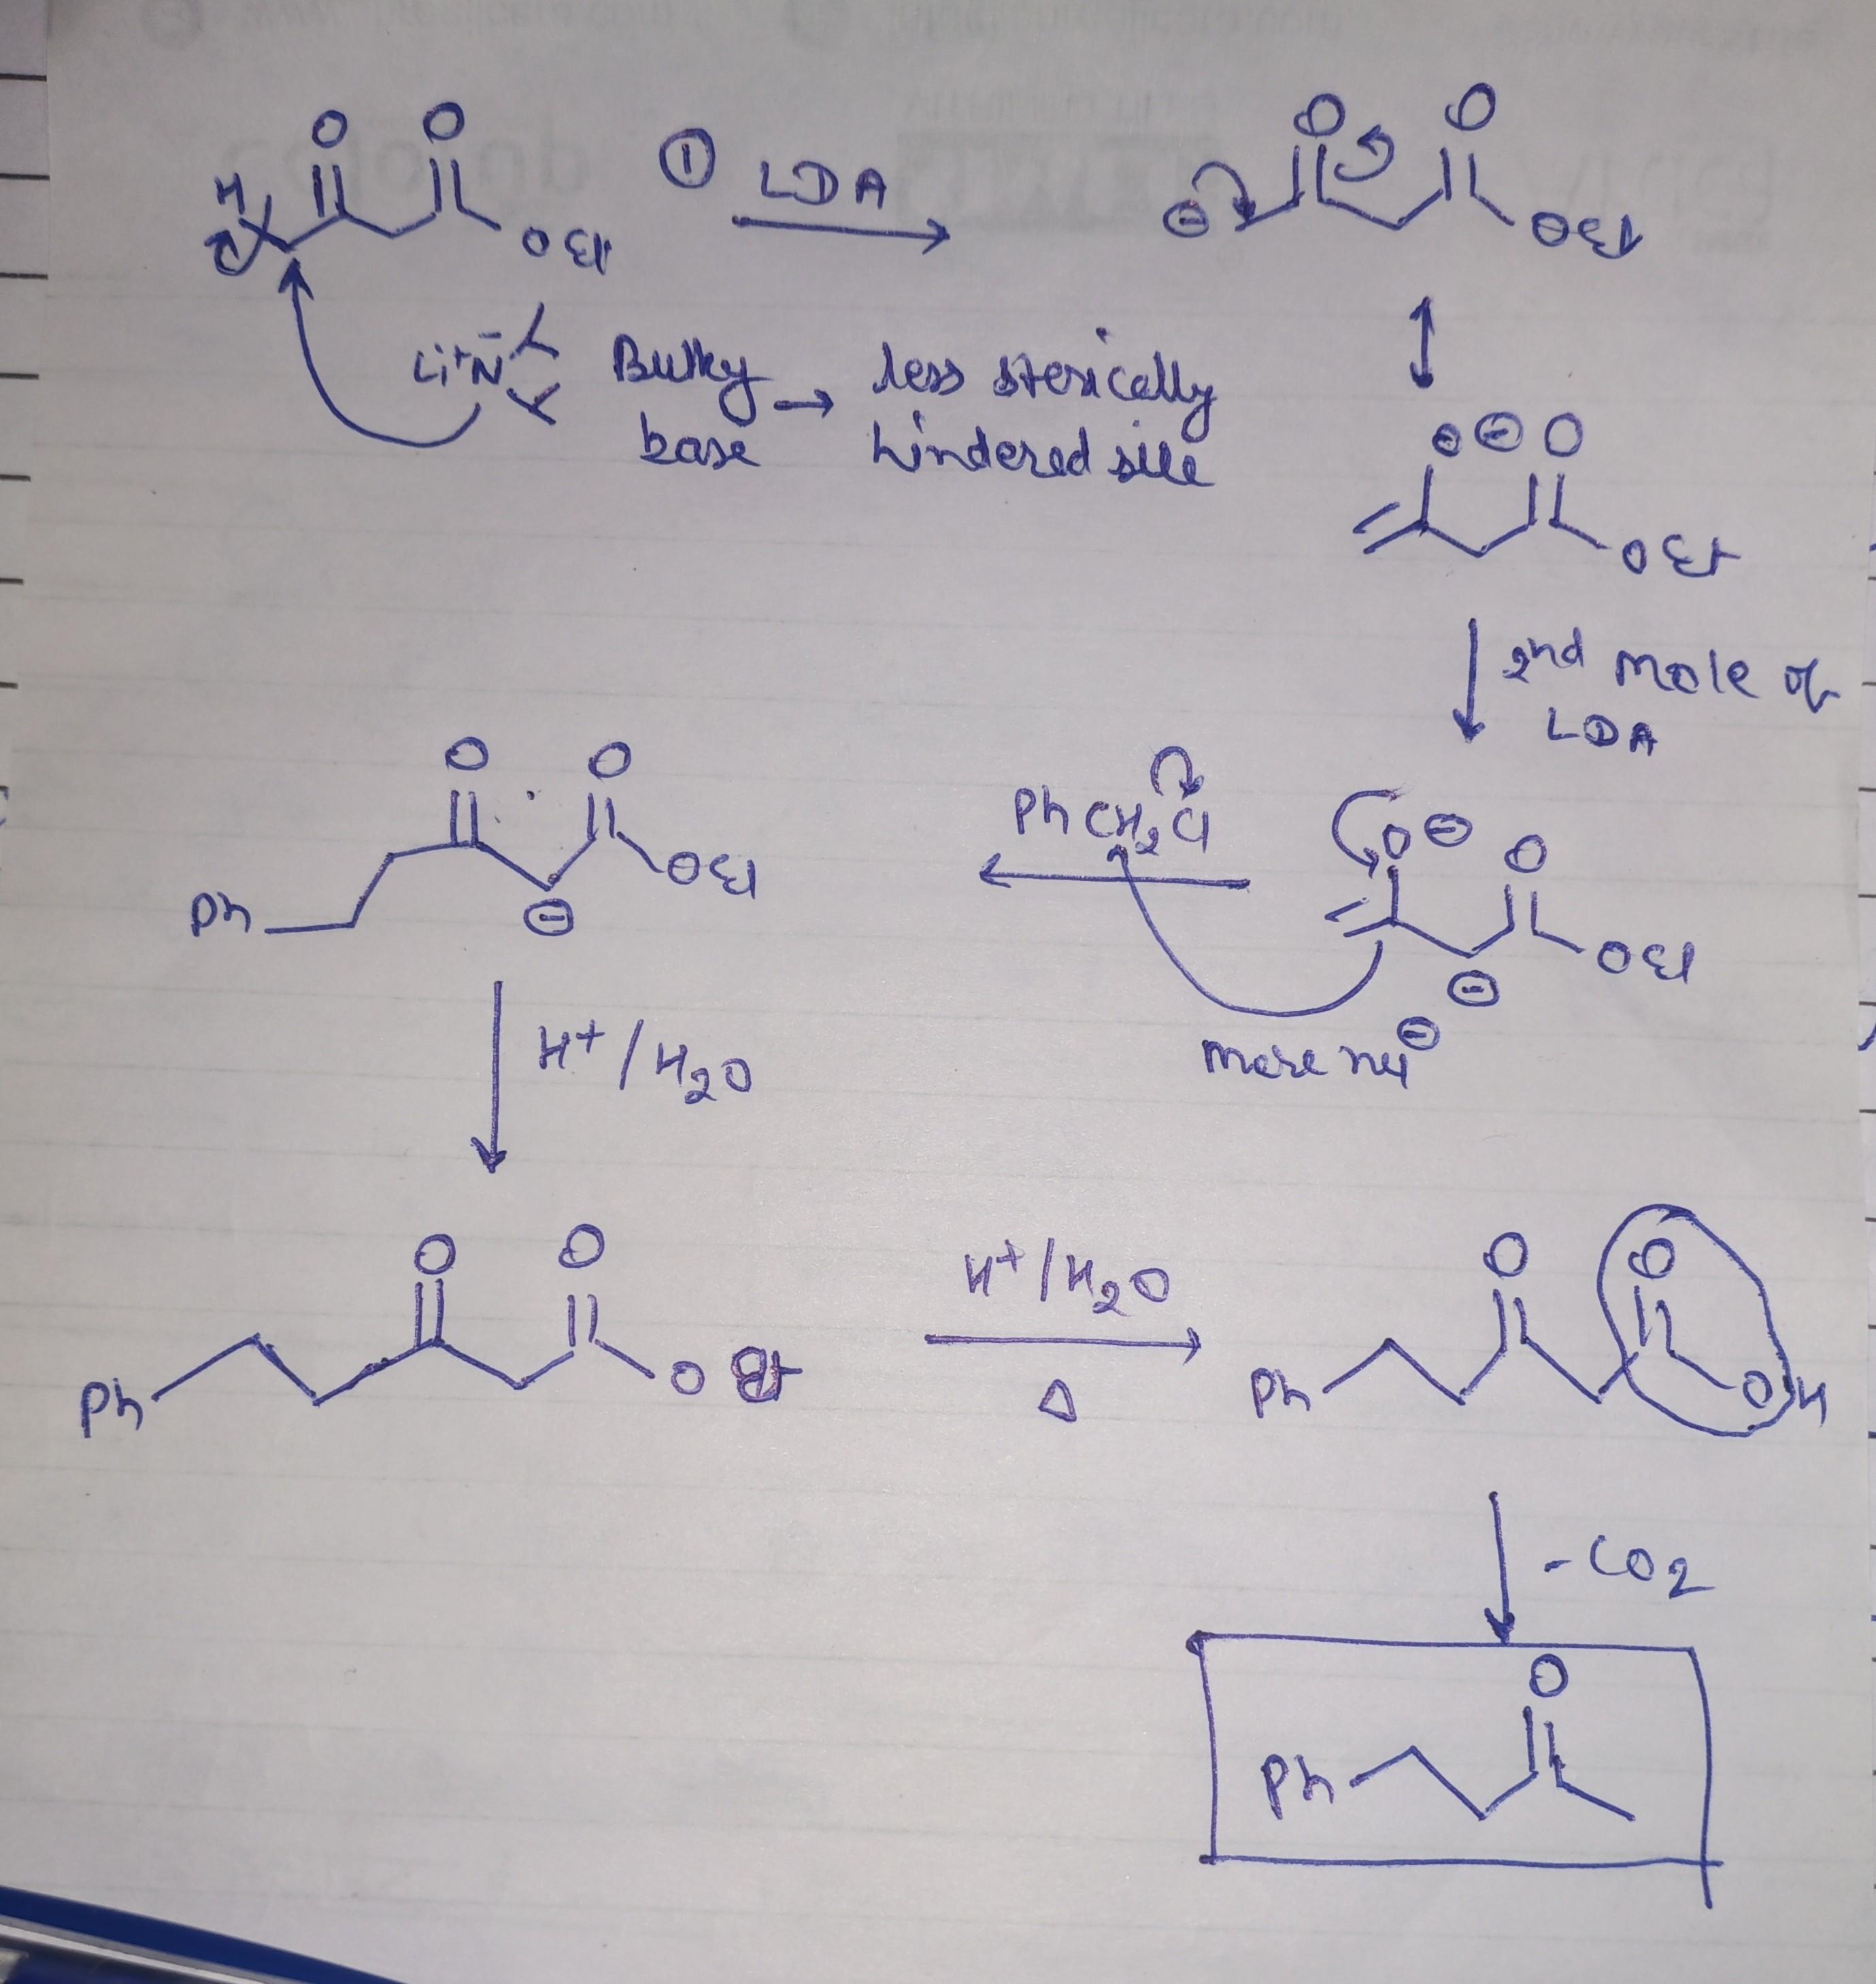 O O
H
① LDA
OEt
O O
⊖ OEt
Li⁺N⁻
Bulky base → less sterically hindered site
O⊖ O
OEt
2nd mole of
LDA
O O
OEt
Ph
⊖
PhCH₂Cl
O⊖ O
OEt
⊖
more nu⊖
H⁺/H₂O
O O
Ph OEt
H⁺/H₂O
Δ
O O
Ph OH
-CO₂
O
Ph